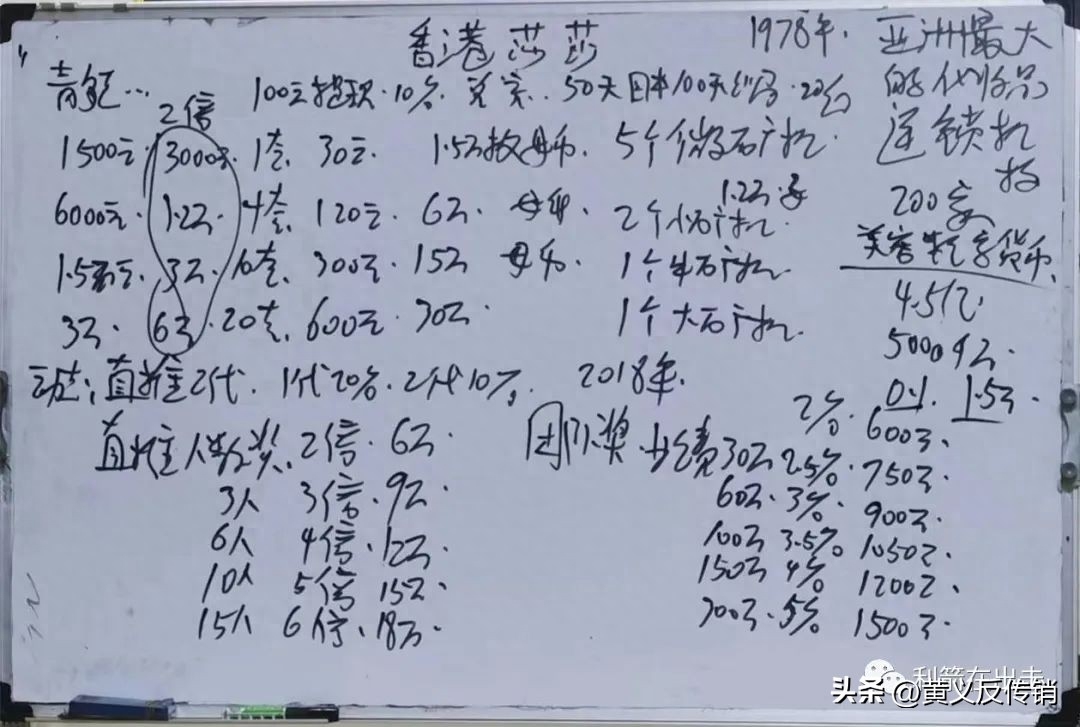 香港莎莎
1978年. 亚洲最大
的化妆品
连锁机
200家
美容数字货币
4.5亿
0.1. 1.5万.
2倍
100元提现.10%. 50天回本100天
1500元. 3000元. 1套 30元. 1.5万枚母币. 5个微石矿机.
6000元. 1.2万. 4套. 120元. 6万. 母币. 2个小石矿机.
1.5万元. 3万. 10套. 300元. 15万 母币. 1个中石矿机.
3万. 6万. 20套. 600元. 30万. 1个大石矿机.
动态:直推2代. 1代20%. 2代10%. 2018年.
直推人数奖. 2倍. 6万.
3人 3倍. 9万.
6人 4倍. 12万.
10人 5倍 15万.
15人 6倍. 18万.
团队奖. 2%. 600万.
30万 2.5%. 750万.
60万. 3%. 900万.
100万 3.5% 1050万.
150万 4% 1200万.
300万. 5% 1500万.
头条 @黄义反传销
利箭在出击